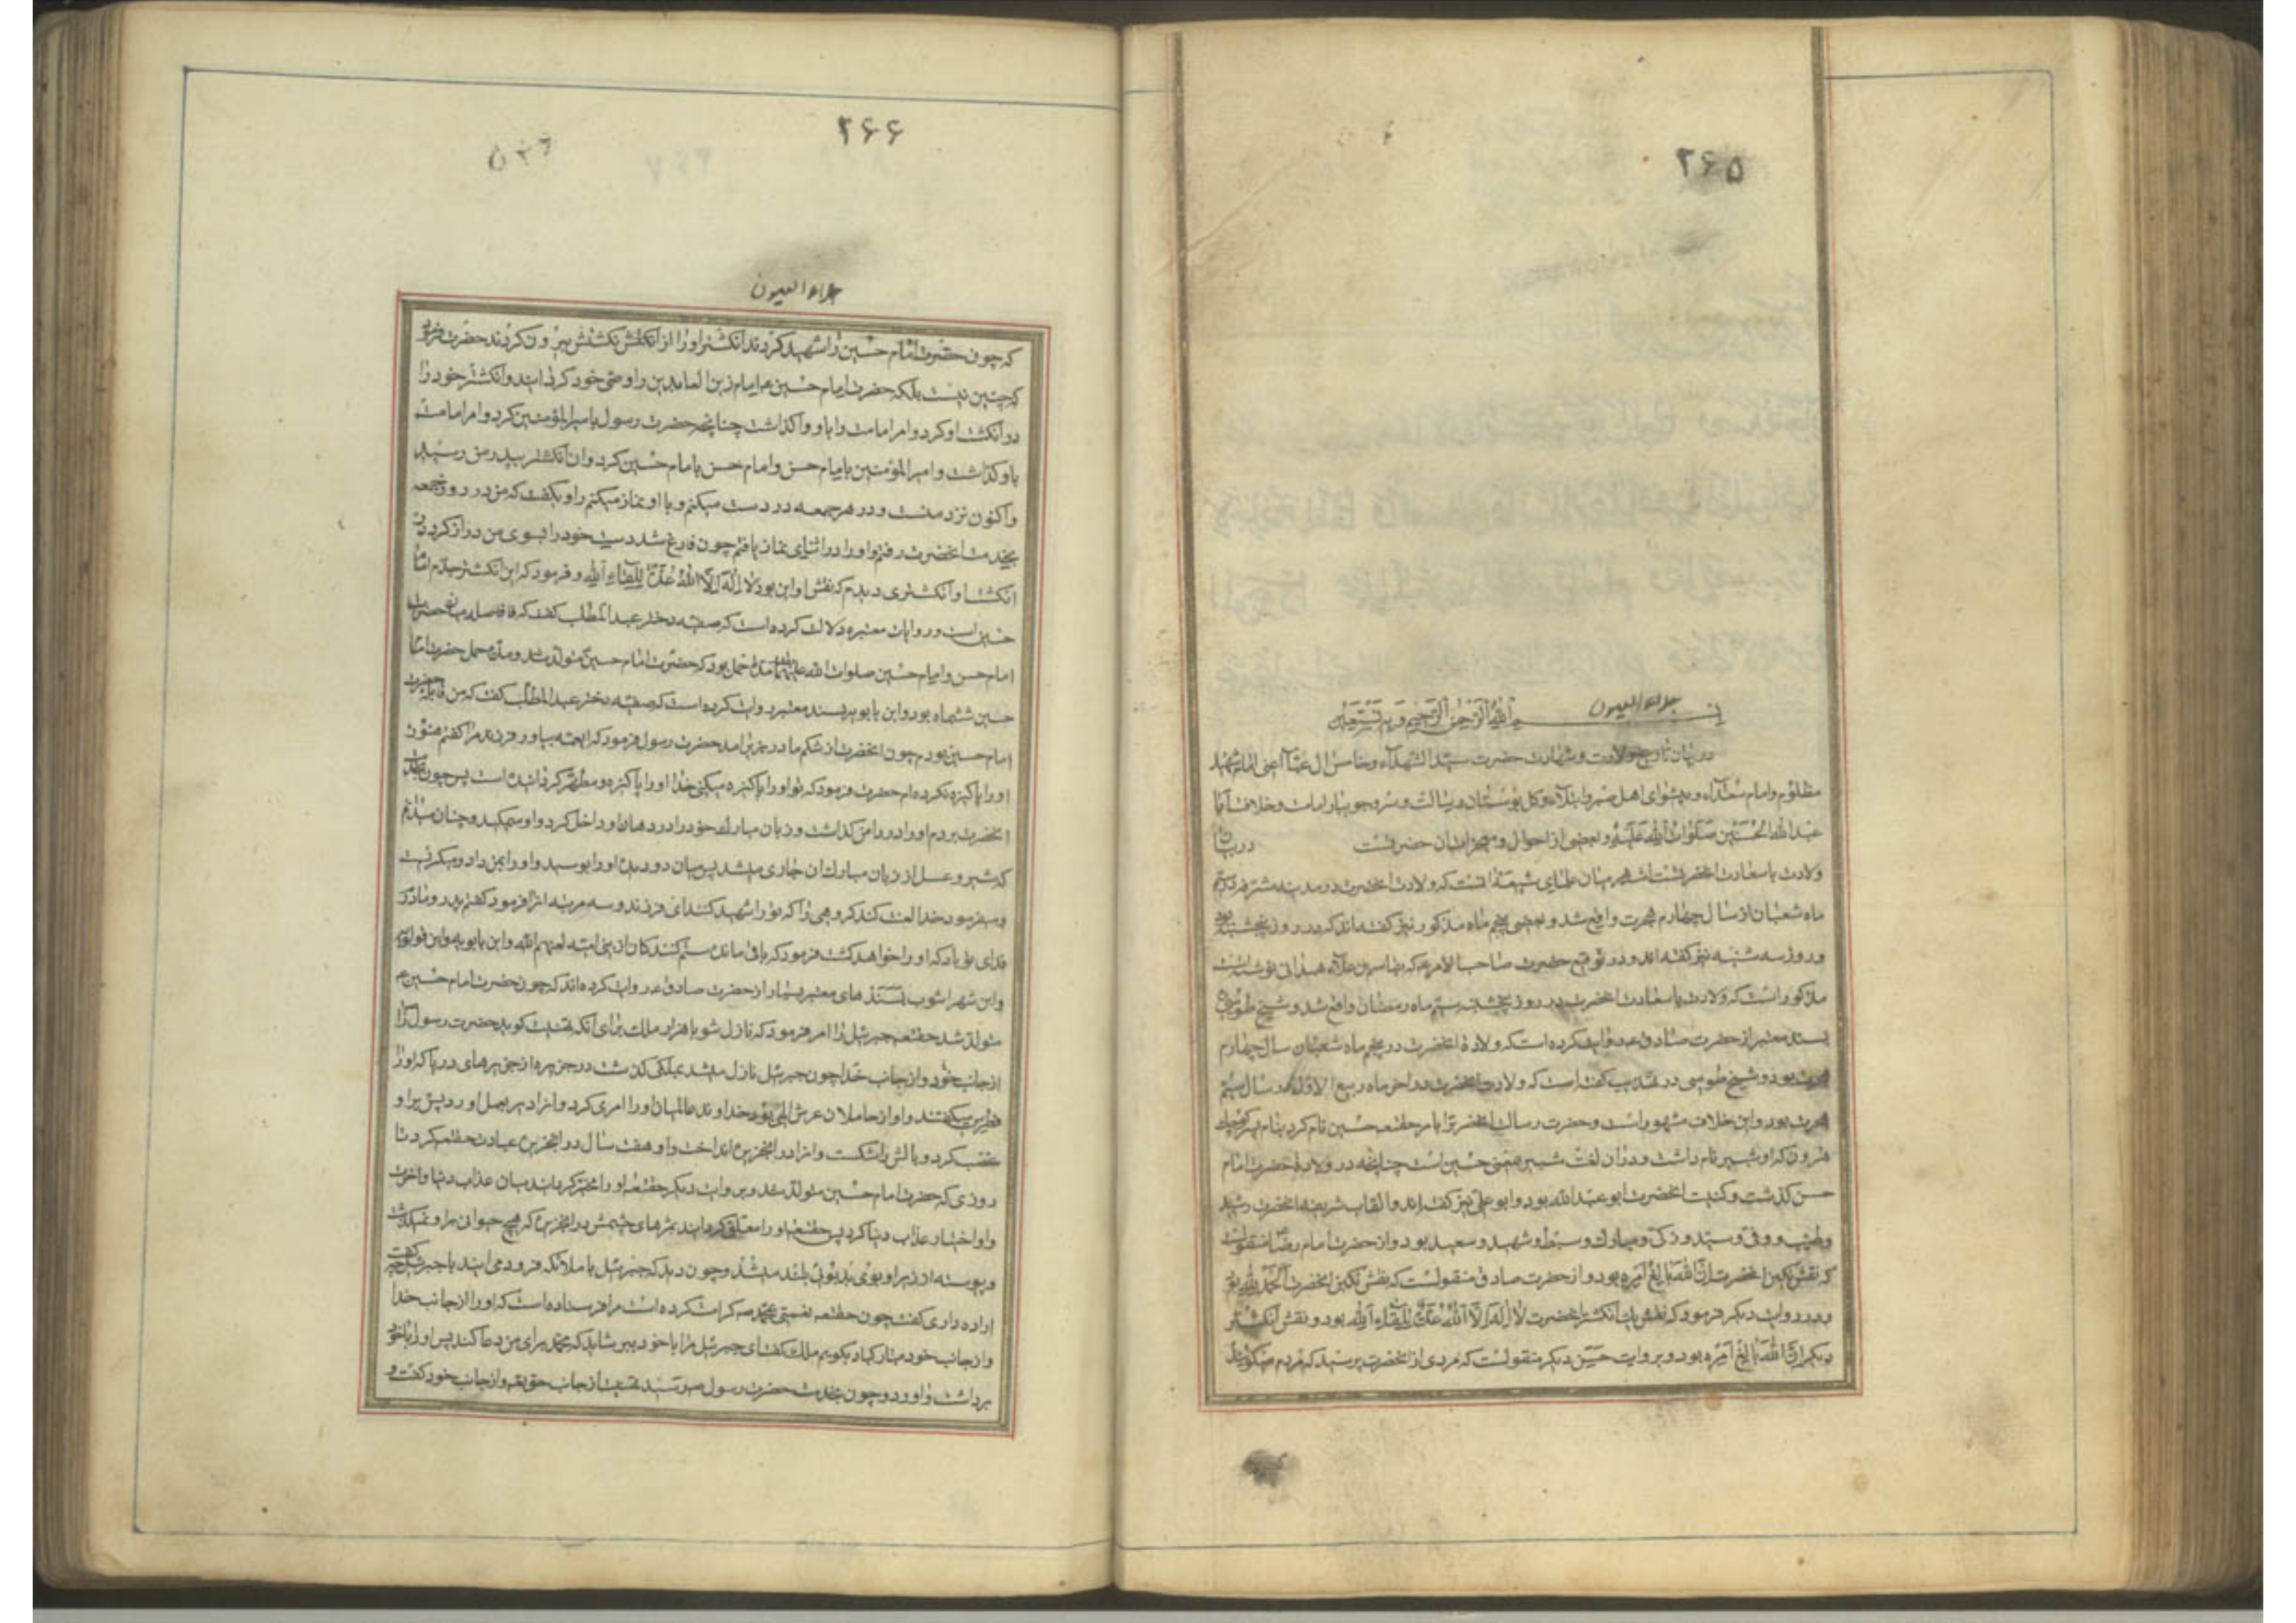 ۲۶۵
جلاء العیون
بسم الله الرحمن الرحیم و به نستعین
در بیان تاریخ ولادت و شهادت حضرت سید الشهداء و خامس ال عبا اعنی امام شهید
مظلوم و امام سعداء و پیشوای اهل صبر و ابتلاء و کل بوستان رسالت و سرو جویبار امامت و خلافت ابا
عبد الله الحسین صلوات الله علیه و بعضی از احوال و معجزات ان حضرتست در بیان
ولادت با سعادت انحضرتست اشهر میان علمای شیعه انست که ولادت انحضرت در مدینه مشرفه در
ماه شعبان از سال چهارم هجرت واقع شد و بعضی پنجم ماه مذکور نیز کفته اند که در روز پنجشنبه بود
و روز سه شنبه نیز کفته اند و در توقیع حضرت صاحب الامر ع که بقاسم بن علاء همدانی نوشته است
مذکور است که ولادت با سعادت انحضرت در روز پنجشنبه سیم ماه رمضان واقع شد و شیخ طوسی
بسند معتبر از حضرت صادق ع روایت کرده است که ولادة انحضرت در پنجم ماه شعبان سال چهارم
هجرت بود و شیخ طوسی در تهذیب کفته است که ولادت انحضرت در اخر ماه ربیع الاول در سال سیم
هجرت بود و این خلاف مشهور است و حضرت رسالت انحضرت را بامر حقتعه حسین نام کرد بنام پسر کوچک
هرون که او شبیر نام داشت و در ان لغت شبیر بمعنی حسین است چنانچه در ولادة حضرت امام
حسن کذشت و کنیت انحضرت ابو عبد الله بود و ابو علی نیز کفته اند و القاب شریفه انحضرت رشید
و طیب و وفی و سید و زکی و مبارک و سبط و شهید و سعید بود و از حضرت امام رضا منقولست
که نقش نکین انحضرت ان الله بالغ امره بود و از حضرت صادق منقولست که نقش نکین انحضرت الحمد لله بود
و در روایت دیکر فرمود که نقش یک انکشتر انحضرت لا اله الا الله عدة للقاء الله بود و نقش انکشتر
دیکر ان الله بالغ امره بود و بروایت دیکر منقولست که مردی از انحضرت پرسید که مردم میکویند
۲۶۶
جلاء العیون
که چون حضرت امام حسین را شهید کردند انکشتر او را از انکشتش بیرون کردند حضرت فرمود
که چنین نیست بلکه حضرت امام حسین ع امام زین العابدین را وصی خود کردانید و انکشتر خود را
در انکشت او کرد و امر امامت را باو واکذاشت چنانچه حضرت رسول بامیر المؤمنین کرد و امر امامت
باو کذاشت و امیر المؤمنین بامام حسن و امام حسن بامام حسین کرد و ان انکشتر بپدر من رسید
و اکنون نزد منست و در هر جمعه در دست میکنم و با او نماز میکنم راوی کفت که من در روز جمعه
بخدمت انحضرت رفتم و او را در اثنای نماز یافتم چون فارغ شد دست خود را بسوی من دراز کرد در
انکشت او انکشتری دیدم که نقش او این بود لا اله الا الله عدة للقاء الله و فرمود که این انکشتر جدم امام
حسین است و روایات معتبره دلالت کرده است که صفیه دختر عبد المطلب کفت که فاصله میان حضرت
امام حسن و امام حسین صلوات الله علیهما مدة حمل بود که حضرت امام حسین متولد شد و مدة حمل حضرت امام
حسین ششماه بود و ابن بابویه بسند معتبر روایت کرده است که صفیه دختر عبد المطلب کفت که من قابله حضرت
امام حسین بودم چون انحضرت از شکم مادر بزیر امد حضرت رسول فرمود که ایعمه بیاور فرزند مرا کفتم هنوز
او را پاکیزه نکرده ام حضرت فرمود که تو او را پاکیزه میکنی خدا او را پاکیزه و مطهر کردانیده است پس چون بنزد
انحضرت بردم او را در دامن کذاشت و زبان مبارک خود را در دهان او داخل کرد و او میمکید و چنان میدانم
که شیر و عسل از زبان مبارک ان جاری میشد پس میان دو دیده او را بوسید و او را بمن داد و میکریست
و میفرمود خدا لعنت کند کروهی را که تو را شهید کنند ای فرزند و سه مرتبه انرا فرمود کفتم پدر و مادرم
فدای تو باد که او را خواهد کشت فرمود که باقی مانده ستم کنندکان از بنی امیه لعنهم الله و ابن بابویه و ابن قولویه
و ابن شهر اشوب بسندهای معتبر بسیار از حضرت صادق ع روایت کرده اند که چون حضرت امام حسین ع
متولد شد حقتعه جبرئیل را امر فرمود که نازل شو با هزار ملک برای انکه تهنیت کوید حضرت رسول را
از جانب خود و از جانب خدا چون جبرئیل نازل میشد بملکی کذشت در جزیره از جزیرهای دریا که او را
فطرس میکفتند و او از حاملان عرش الهی بود خداوند عالمیان او را امری کرد و انرا دیر بعمل اورد پس بر او
غضب کرد و بالش را شکست و انرا در انجزیره انداخت و او هفت سال در انجزیره عبادت حقتعه کرد تا
روزی که حضرت امام حسین متولد شد و بروایت دیکر حقتعه او را مخیر کردانید میان عذاب دنیا و اخرت
و او اختیار عذاب دنیا کرد پس حقتعه او را معلق کردانید بمژهای چشمش در انجزیره که هیچ حیوانی بر او نمیکذشت
و پیوسته از زیر او بوی بد بوئی بلند میشد و چون دید که جبرئیل با ملائکه فرود می ایند با جبرئیل کفت
اراده داری کفت چون حقتعه نعمتی بمحمد ص کرامت کرده است مرا فرستاده است که او را از جانب خدا
و از جانب خود مبارکباد بکویم ملک کفت ای جبرئیل مرا با خود ببر شاید که محمد برای من دعا کند پس او را با خود
برداشت و اورد و چون بخدمت حضرت رسول ص رسید تهنیت از جانب حقتعه و از جانب خود کفت و